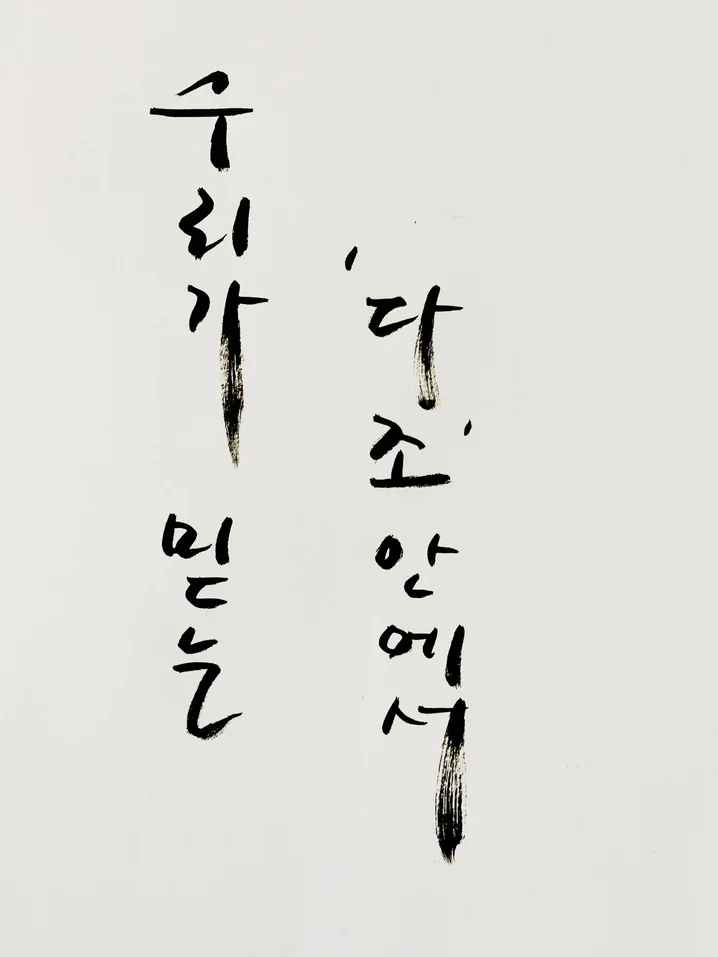 우리가 믿는
'다조' 안에서